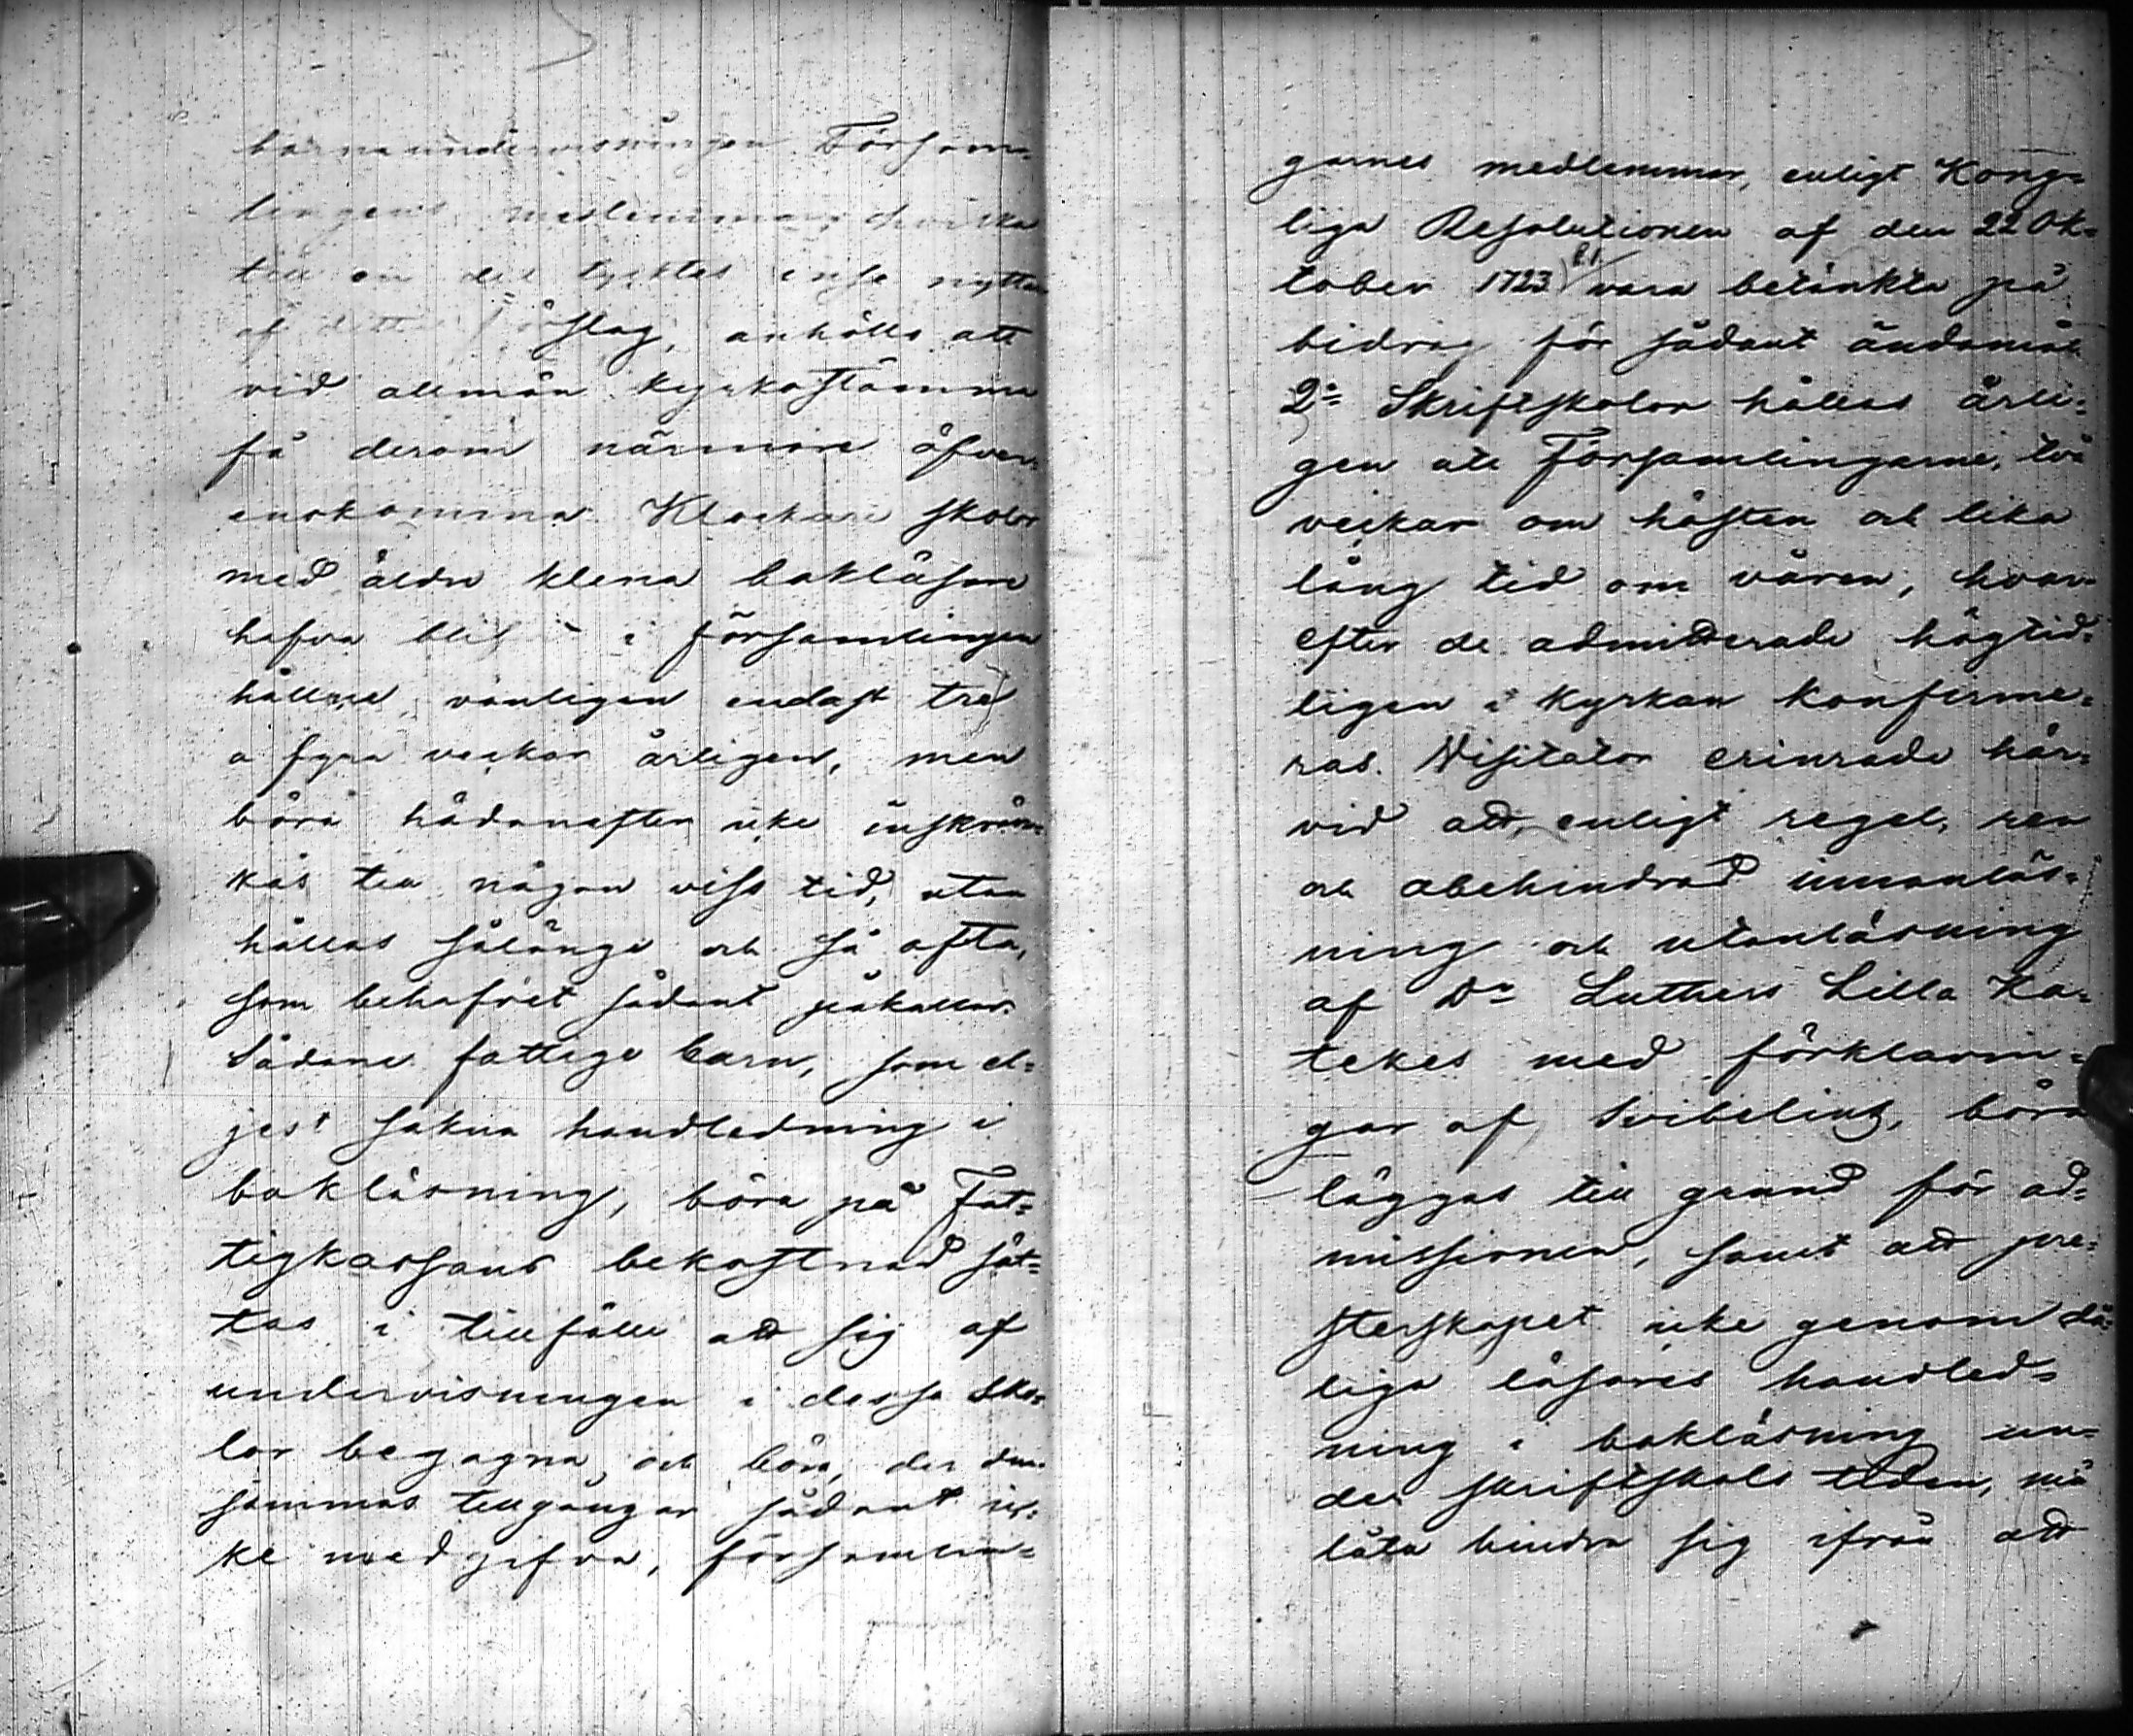 barnaundervisningen. Försam-
lingens medlemmar, hvilka
till en del tycktes inse nyttan
af detta förslag, anhölls att
vid allmän kyrkostämma
få derom närmare öfver-
enskomma. Klockare skolor
med äldre klena bokläsare
hafva blif i församlingen
hållne, vanligen endast tre
a fyra veckor årligen, men
böra hädanefter icke inskrän-
kas till någon viss tid, utan
hållas sålänge och så ofta,
som behofvet sådant påkallar.
Sådane fattige barn, som el=
jest sakna handledning i
bokläsning, böra på Fat=
tigkassans bekostnad sät=
tas i tillfälle att sig af
undervisningen i dessa sko=
lor begagna, och böra, der den-
sammas tillgångar sådant ic=
ke medgifva, församlin=
garnes medlemmar, enligt Kong=
liga Resolutionen af den 22 Ok=
tober 1723 vara betänkta på
bidrag för sådant ändamål.
2:= Skriftskolor hållas årli=
gen uti Församlingarne, två
veckar om hösten och lika
lång tid om våren, hvar-
efter de admitterade högtid=
ligen i kyrkan konfirme=
ras. Visitator erinrade här=
vid att, enligt regel, ren
och obehindrad innanläs=
ning och utanläsning
af Dr Luthers Lilla Ka=
tekes med förklarin=
gar af Svibelius, böra
läggas till grund för ad=
missionen, samt att pre=
sterskapet icke genom då=
liga läsares handled=
ning i bokläsning un=
der skriftskole tiden, må
låta hindra sig ifrån att